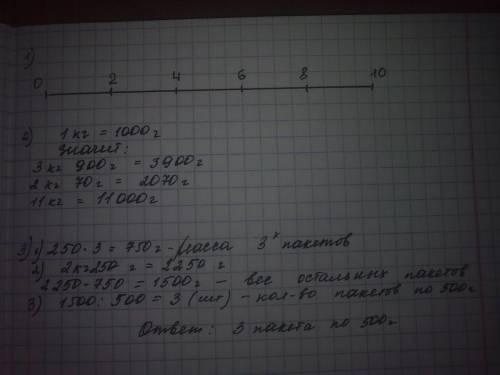 1)
0 2 4 6 8 10
2) 1 кг = 1000 г
значит:
3 кг 900 г = 3900 г
2 кг 70 г = 2070 г
11 кг = 11000 г
3) 1) 250 · 3 = 750 г - масса 3х пакетов
2) 2 кг 250 г = 2250 г
2250 - 750 = 1500 г - вес остальных пакетов
3) 1500 : 500 = 3 (шт) - кол-во пакетов по 500 г
Ответ: 3 пакета по 500 г